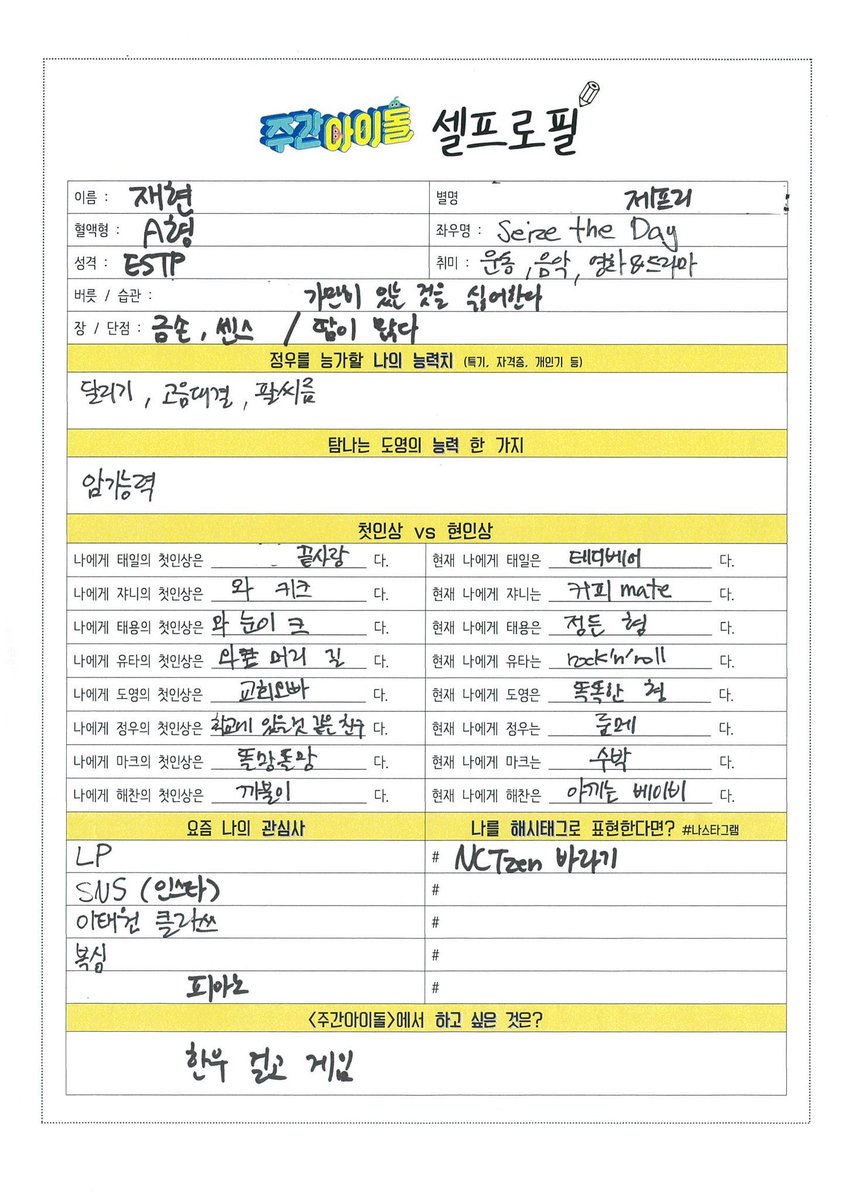 주간아이돌 셀프로필
이름 : 재현 별명 제프리
혈액형 : A형 좌우명 : Seize the Day
성격 : ESTP 취미 : 운동, 음악, 영화&드라마
버릇 / 습관 : 가만히 있는 것을 싫어한다
장 / 단점 : 금손, 센스 / 땀이 많다
정우를 능가할 나의 능력치 (특기, 자격증, 개인기 등)
달리기, 고음대결, 팔씨름
탐나는 도영의 능력 한 가지
암기능력
첫인상 vs 현인상
나에게 태일의 첫인상은 끝사랑 다. 현재 나에게 태일은 테디베어 다.
나에게 쟈니의 첫인상은 와 키크 다. 현재 나에게 쟈니는 커피 mate 다.
나에게 태용의 첫인상은 와 눈이 크 다. 현재 나에게 태용은 정든 형 다.
나에게 유타의 첫인상은 와 머리 길 다. 현재 나에게 유타는 rock'n'roll 다.
나에게 도영의 첫인상은 교회오빠 다. 현재 나에게 도영은 똑똑한 형 다.
나에게 정우의 첫인상은 학교에 있을것 같은 친구 다. 현재 나에게 정우는 룸메 다.
나에게 마크의 첫인상은 똘망똘망 다. 현재 나에게 마크는 수박 다.
나에게 해찬의 첫인상은 까불이 다. 현재 나에게 해찬은 아끼는 베이비 다.
요즘 나의 관심사 나를 해시태그로 표현한다면? #나스타그램
LP # NCTzen 바라기
SNS (인스타) #
이태원 클라쓰 #
복싱 #
피아노 #
<주간아이돌>에서 하고 싶은 것은?
한우 걸고 게임